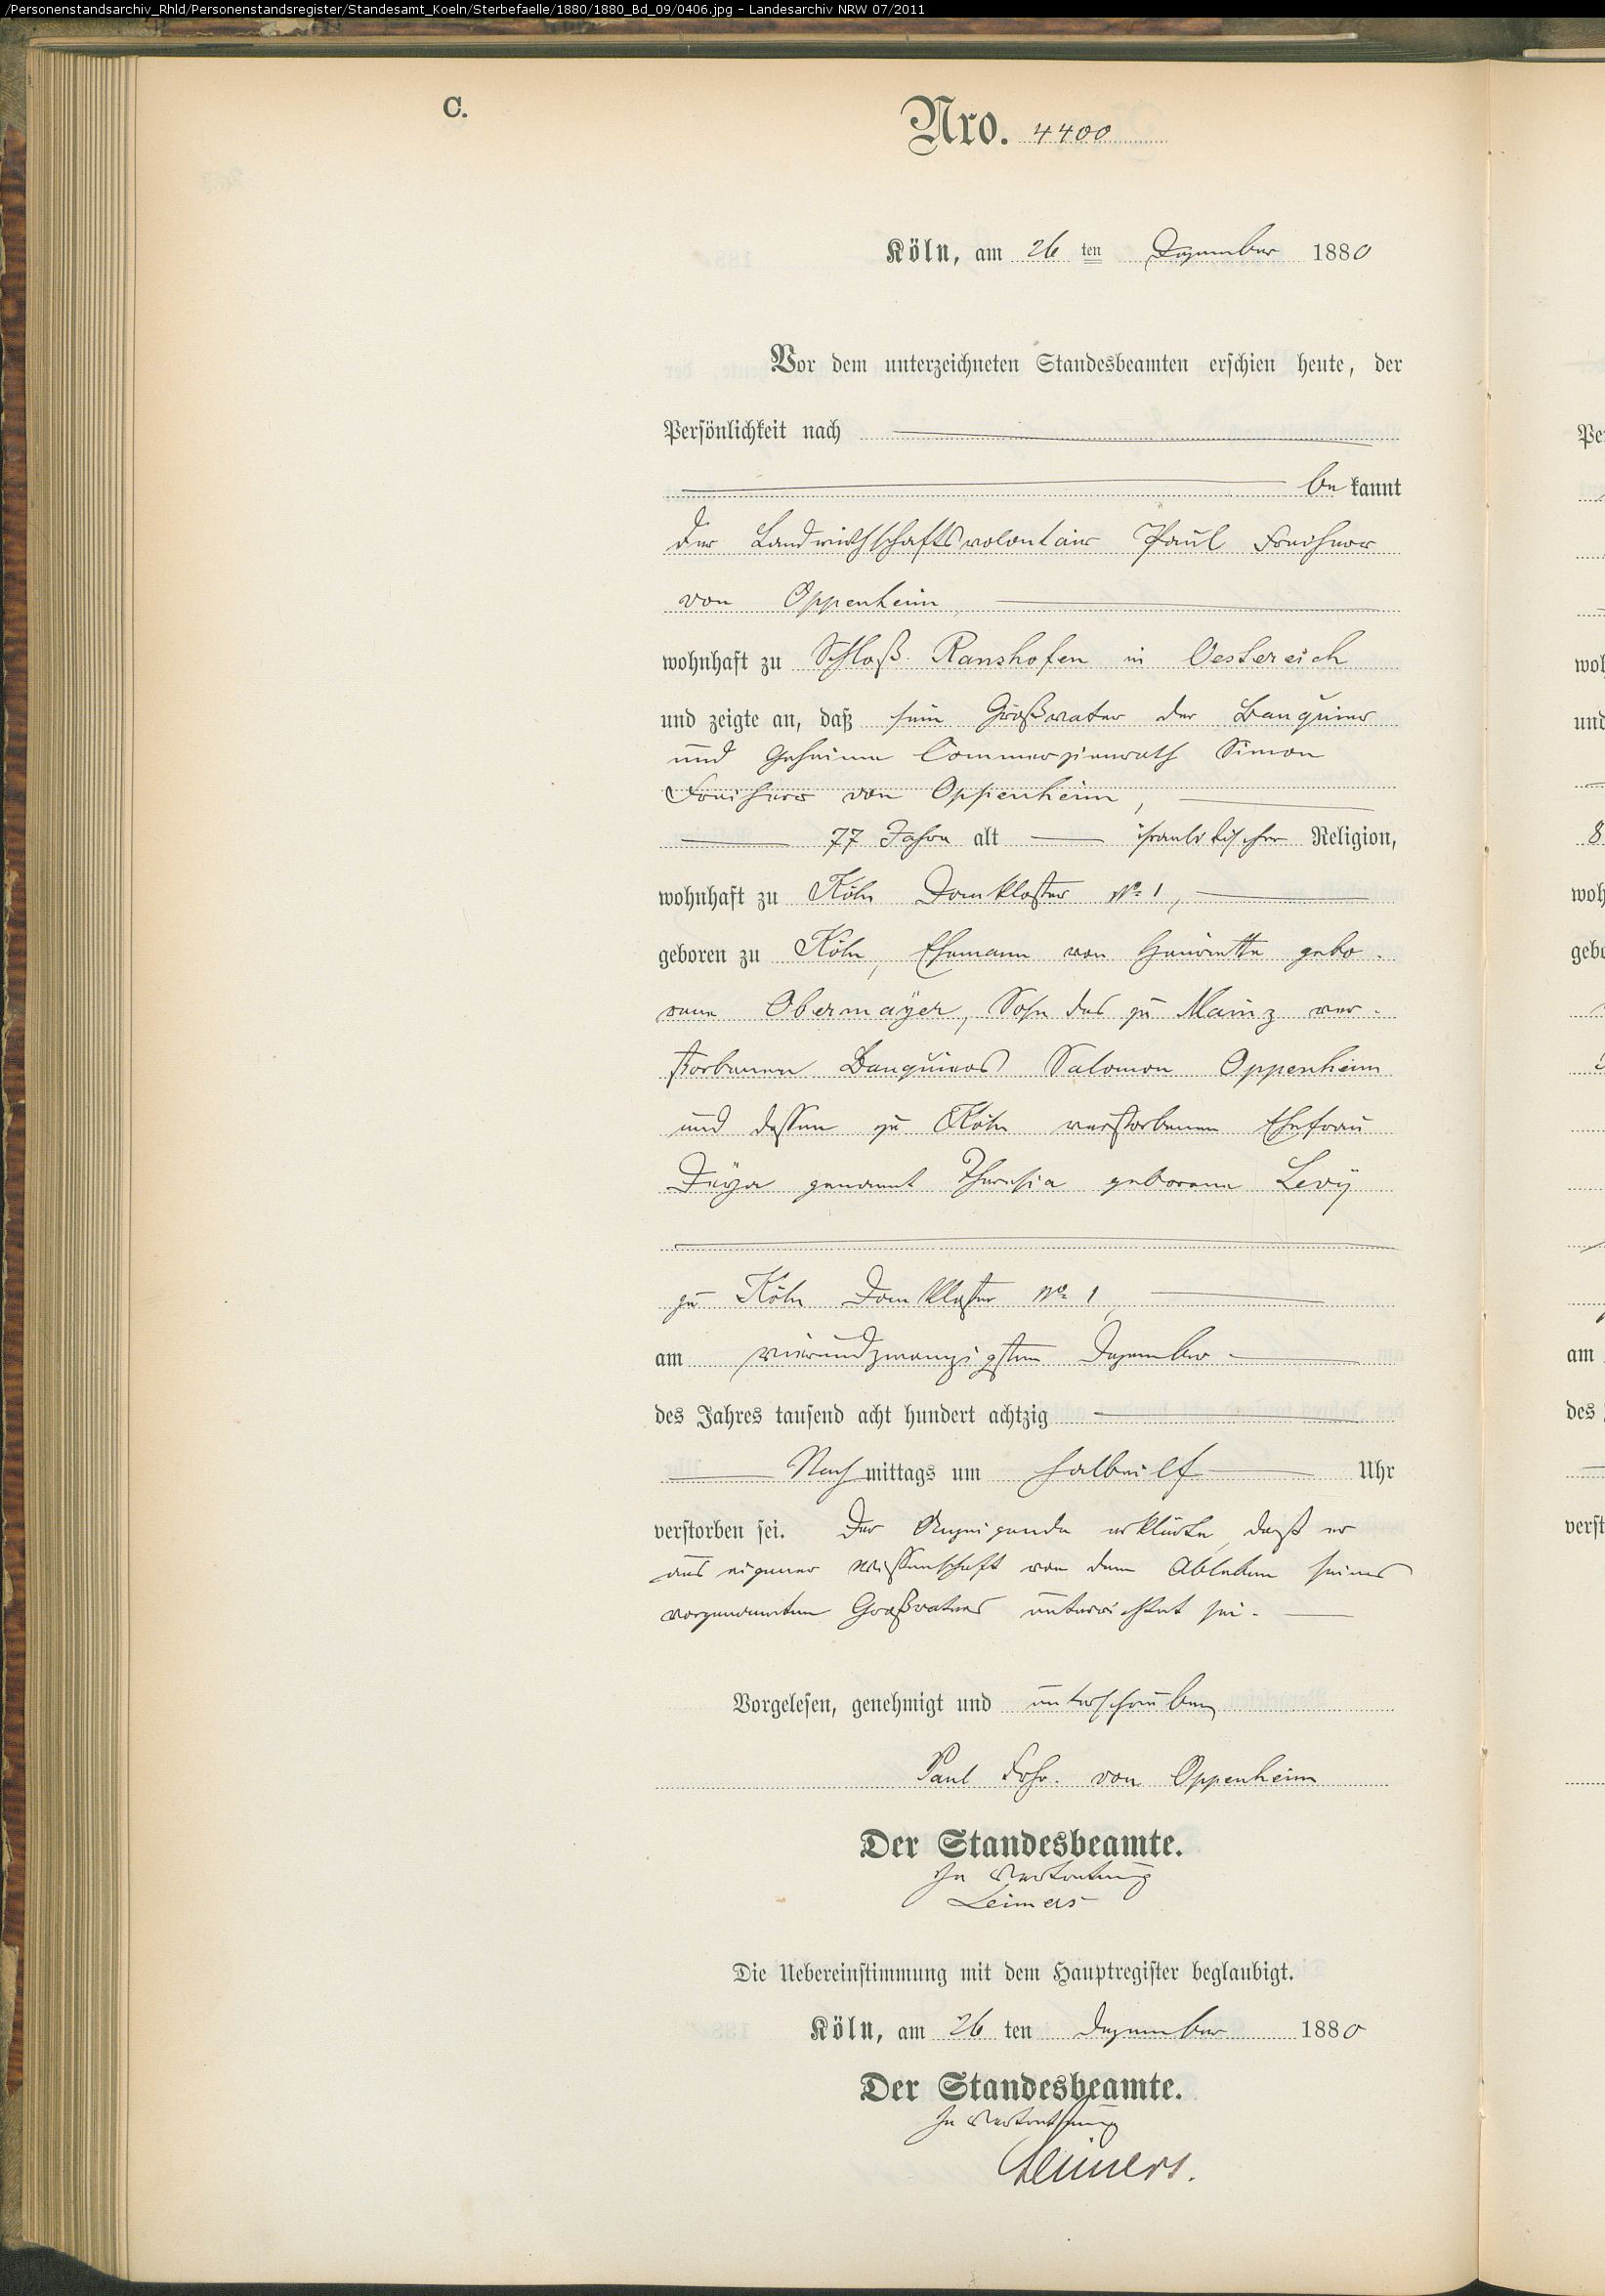 /Personenstandsarchiv_Rhld/Personenstandsregister/Standesamt_Koeln/Sterbefaelle/1880/1880_Bd_09/0406.jpg - Landesarchiv NRW 07/2011
C.
Nro. 4400
Köln, am 26 ten Dezember 1880
Vor dem unterzeichneten Standesbeamten erschien heute, der
Persönlichkeit nach
be kannt
der Landwirthschaftsvolontair Paul Freiherr
von Oppenheim,
wohnhaft zu Schloß Ranshofen in Oestereich
und zeigte an, daß sein Großvater der Banquier
und Geheime Commerzienrath Simon
Freiherr von Oppenheim,
77 Jahre alt israelitischer Religion,
wohnhaft zu Köln Domkloster No 1,
geboren zu Köln, Ehemann von Henriette gebo-
rene Obermayer, Sohn des zu Mainz ver-
storbenen Banquiers Salomon Oppenheim
und dessen zu Köln verstorbenen Ehefrau
genannt Theresia geborene Levÿ
zu Köln Domkloster No 1,
am vierundzwanzigsten Dezember
des Jahres tausend acht hundert achtzig
Nach mittags um halbeilf Uhr
verstorben sei. Der Anzeigende erklärte, daß er
aus eigener Wissenschaft von dem Ableben seines
vorgenannten Großvaters unterrichtet sei.
Vorgelesen, genehmigt und unterschrieben
Paul Frhr. von Oppenheim
Der Standesbeamte.
In Vertretung
Leimers
Die Uebereinstimmung mit dem Hauptregister beglaubigt.
Köln, am 26 ten Dezember 1880
Der Standesbeamte.
In Vertretung
Leimers.